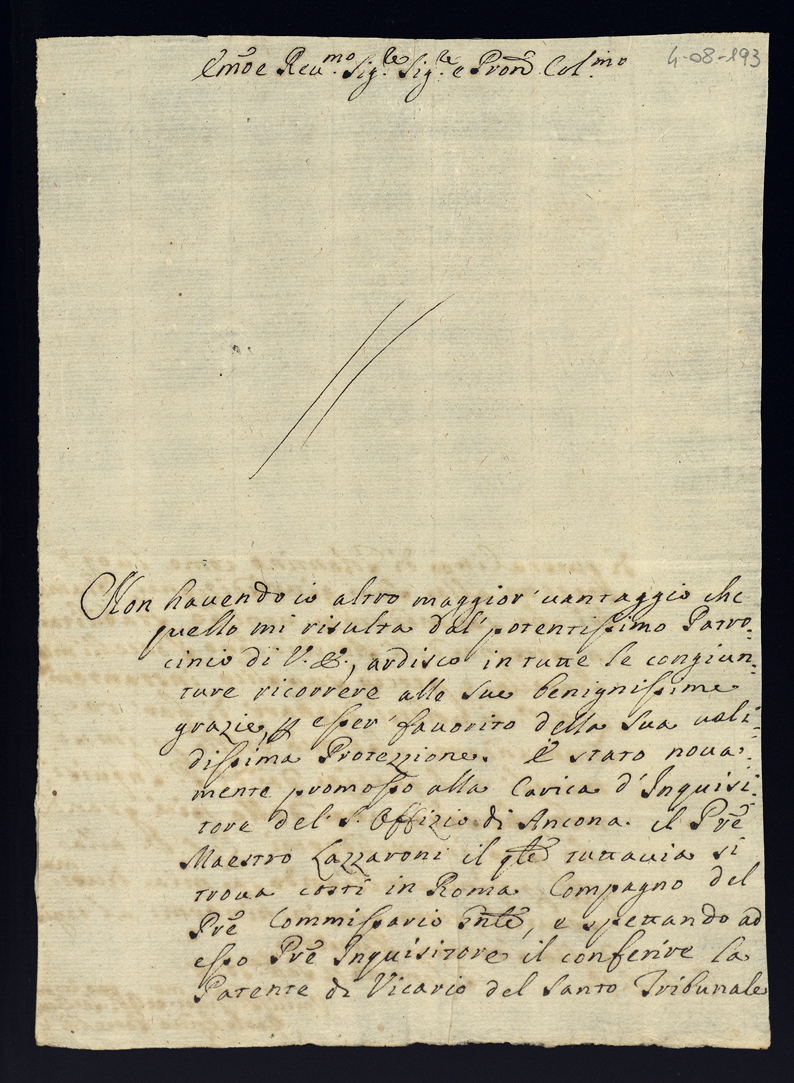 4-08-193
Em̃o e Reu.mo Sig.re Sig.re e Pron̄ Col.mo
Non hauendo io altro maggior' uantaggio che
quello mi risulta dal' potentissimo Patro:
cinio di V. E., ardisco in tutte le congiun:
ture ricorrere alle sue benignissime
grazie, p esser' fauorito della sua ualì:
dissima Protezzione. È stato noua:
mente promosso alla Carica d'Inquisi:
tore del' S. Offizio di Ancona il Prẽ
Maestro Lazzaroni il qlẽ tuttauia si
troua costì in Roma Compagno del
Prẽ Commissario Gñlẽ, e spettando ad
esso Prẽ Inquisitore il conferire la
Patente di Vicario del Santo Tribunale